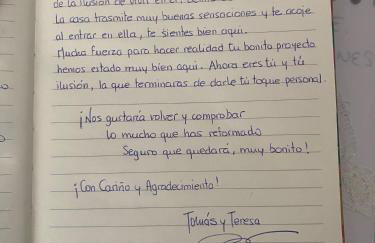 de la ilusión de vivir en él,
La casa trasmite muy buenas sensaciones y te acoje
al entrar en ella, te sientes bien aqui.
Mucha fuerza para hacer realidad tu bonito proyecto
hemos estado muy bien aquí. Ahora eres tú y tú
ilusión, la que terminaras de darle tú toque personal.
¡Nos gustaría volver y comprobar
lo mucho que has reformado
Seguro que quedará, muy bonito!
¡Con Cariño y Agradecimiento!
Tomás y Teresa